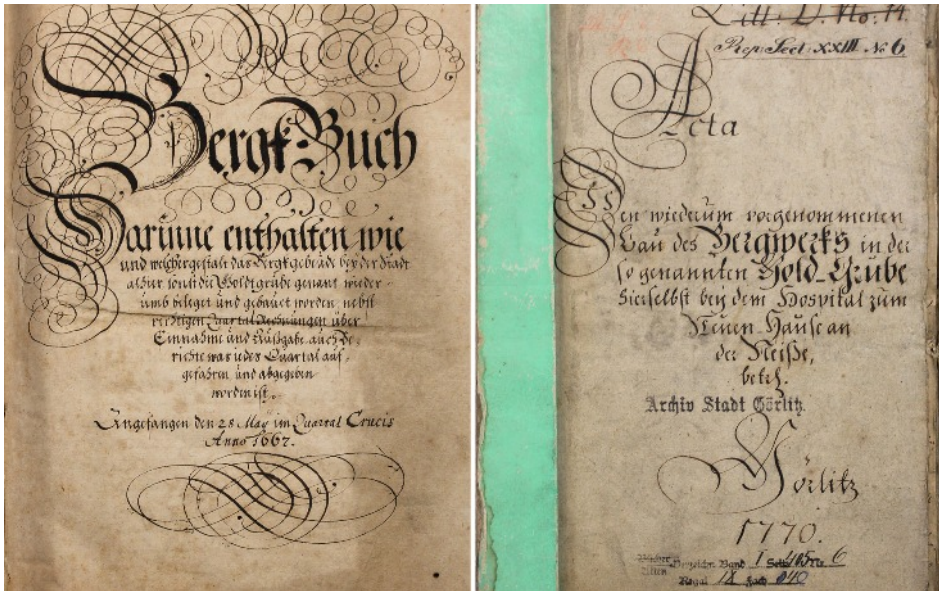 Bergk-Buch
Darinne enthalten wie
und welcher gestalt das Bergkgebeude bey der Stadt
alhier sonst die Goldtgrube genant wieder-
umb beleget und gebauet worden, nebst
richtigen Quartal Rechnungen über
Einnahme und Außgabe, auch Be-
richte was iedes Quartal auf-
gefahren und abgegeben
worden ist.
Angefangen den 28 May im Quartal Crucis
Anno 1667.
Litt: D. No: 14.
Rep. Sect. XXIII № 6
Acta
Den wiederum vorgenommenen
Bau des Bergwerks in der
so genannten Gold-Grube
hierselbst bey dem Hospital zum
Neuen Hause an
der Neiße,
betr.
Archiv Stadt Görlitz.
Görlitz
1770.
Verzeichn. Band I Seite 405 Nr. 6
Regal 18 Fach